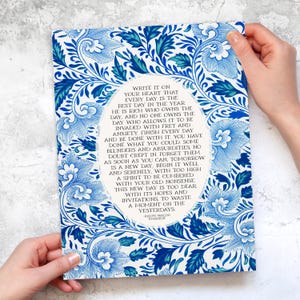 WRITE IT ON
YOUR HEART THAT
EVERY DAY IS THE
BEST DAY IN THE YEAR.
HE IS RICH WHO OWNS THE
DAY, AND NO ONE OWNS THE
DAY WHO ALLOWS IT TO BE
INVADED WITH FRET AND
ANXIETY. FINISH EVERY DAY
AND BE DONE WITH IT. YOU HAVE
DONE WHAT YOU COULD. SOME
BLUNDERS AND ABSURDITIES, NO
DOUBT CREPT IN. FORGET THEM
AS SOON AS YOU CAN, TOMORROW
IS A NEW DAY; BEGIN IT WELL
AND SERENELY, WITH TOO HIGH
A SPIRIT TO BE CUMBERED
WITH YOUR OLD NONSENSE.
THIS NEW DAY IS TOO DEAR,
WITH ITS HOPES AND
INVITATIONS, TO WASTE
A MOMENT ON THE
YESTERDAYS.
RALPH WALDO
EMERSON